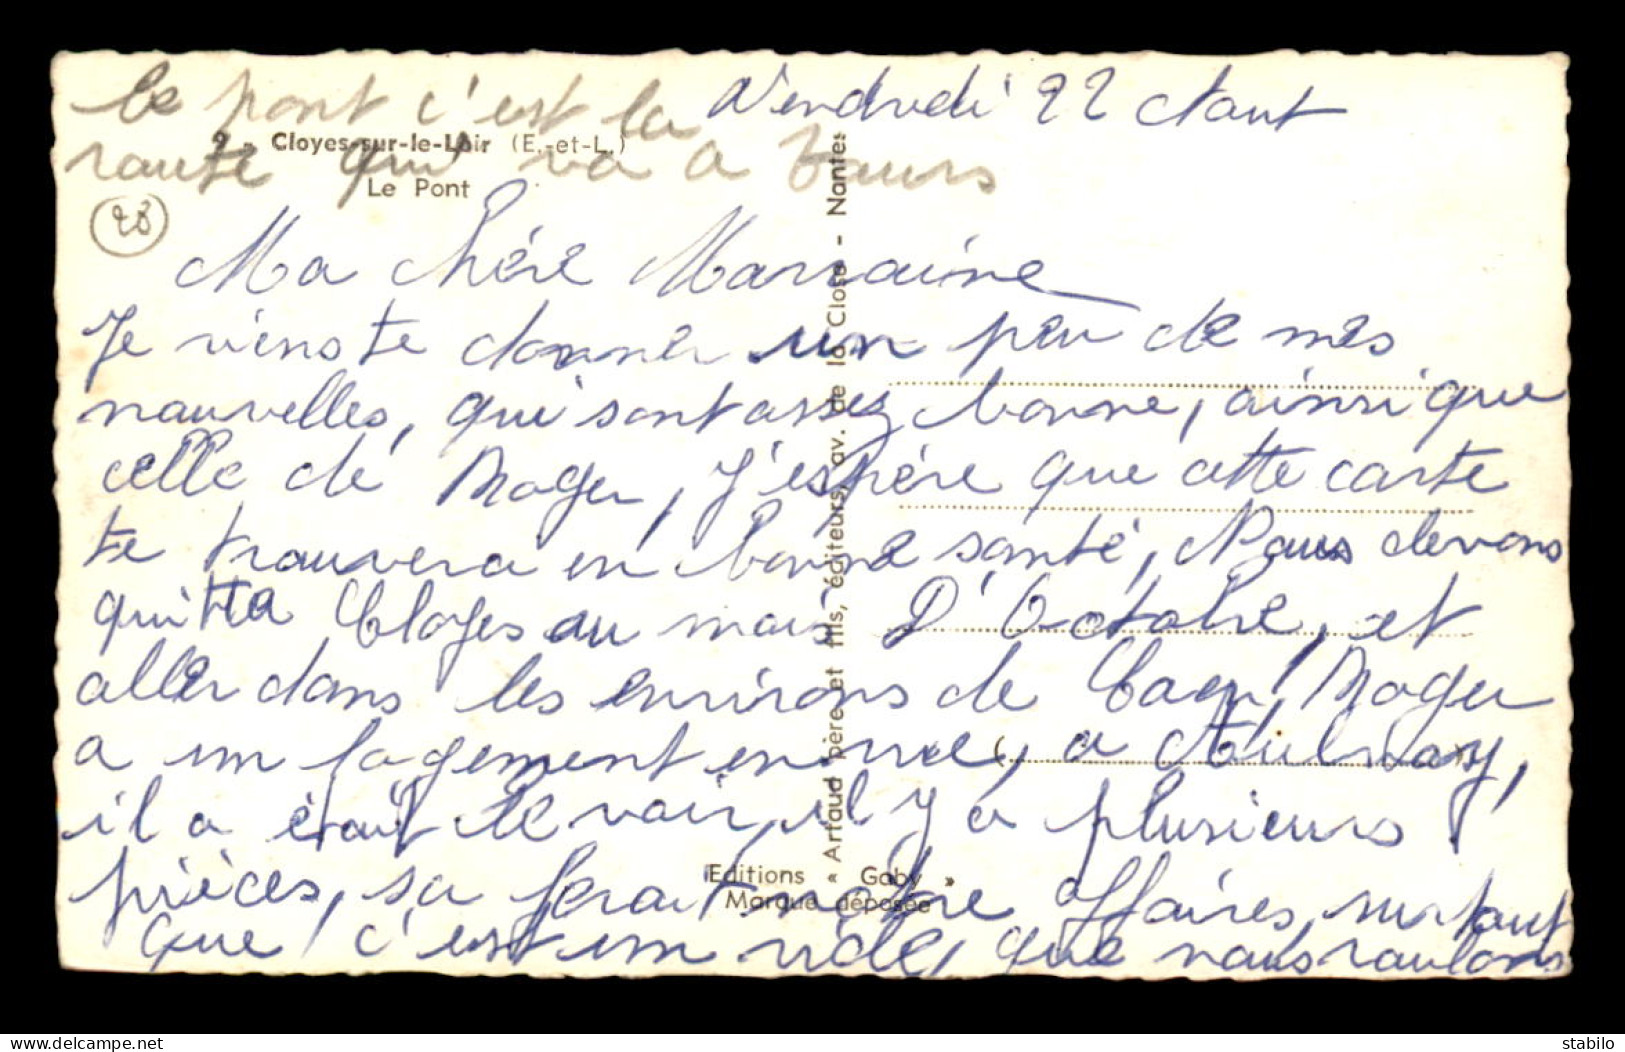 Le pont c'est la
route qui va a Tours
Vendredi 22 Aout
9 - Cloyes-sur-le-Loir (E.-et-L.)
Le Pont
28
Ma Chére Marraine
Je viens te donner un peu de mes
nouvelles, qui sont assez bonne, ainsi que
celle de Roger, J'espére que cette carte
te trouvera en bonne santé, Nous devons
quitta Cloyes au mois D'Octobre, et
aller dans les environs de Caen, Roger
a un logement en vue, a Aulnay,
il a était le voir, il y a plusieurs
pièces, sa ferait notre Affaires, surtout
que c'est un vide, que nous voulons
Artaud père et fils, éditeurs, av. de la Close - Nantes
Editions « Gaby »
Marque déposée
www.delcampe.net
stabilo